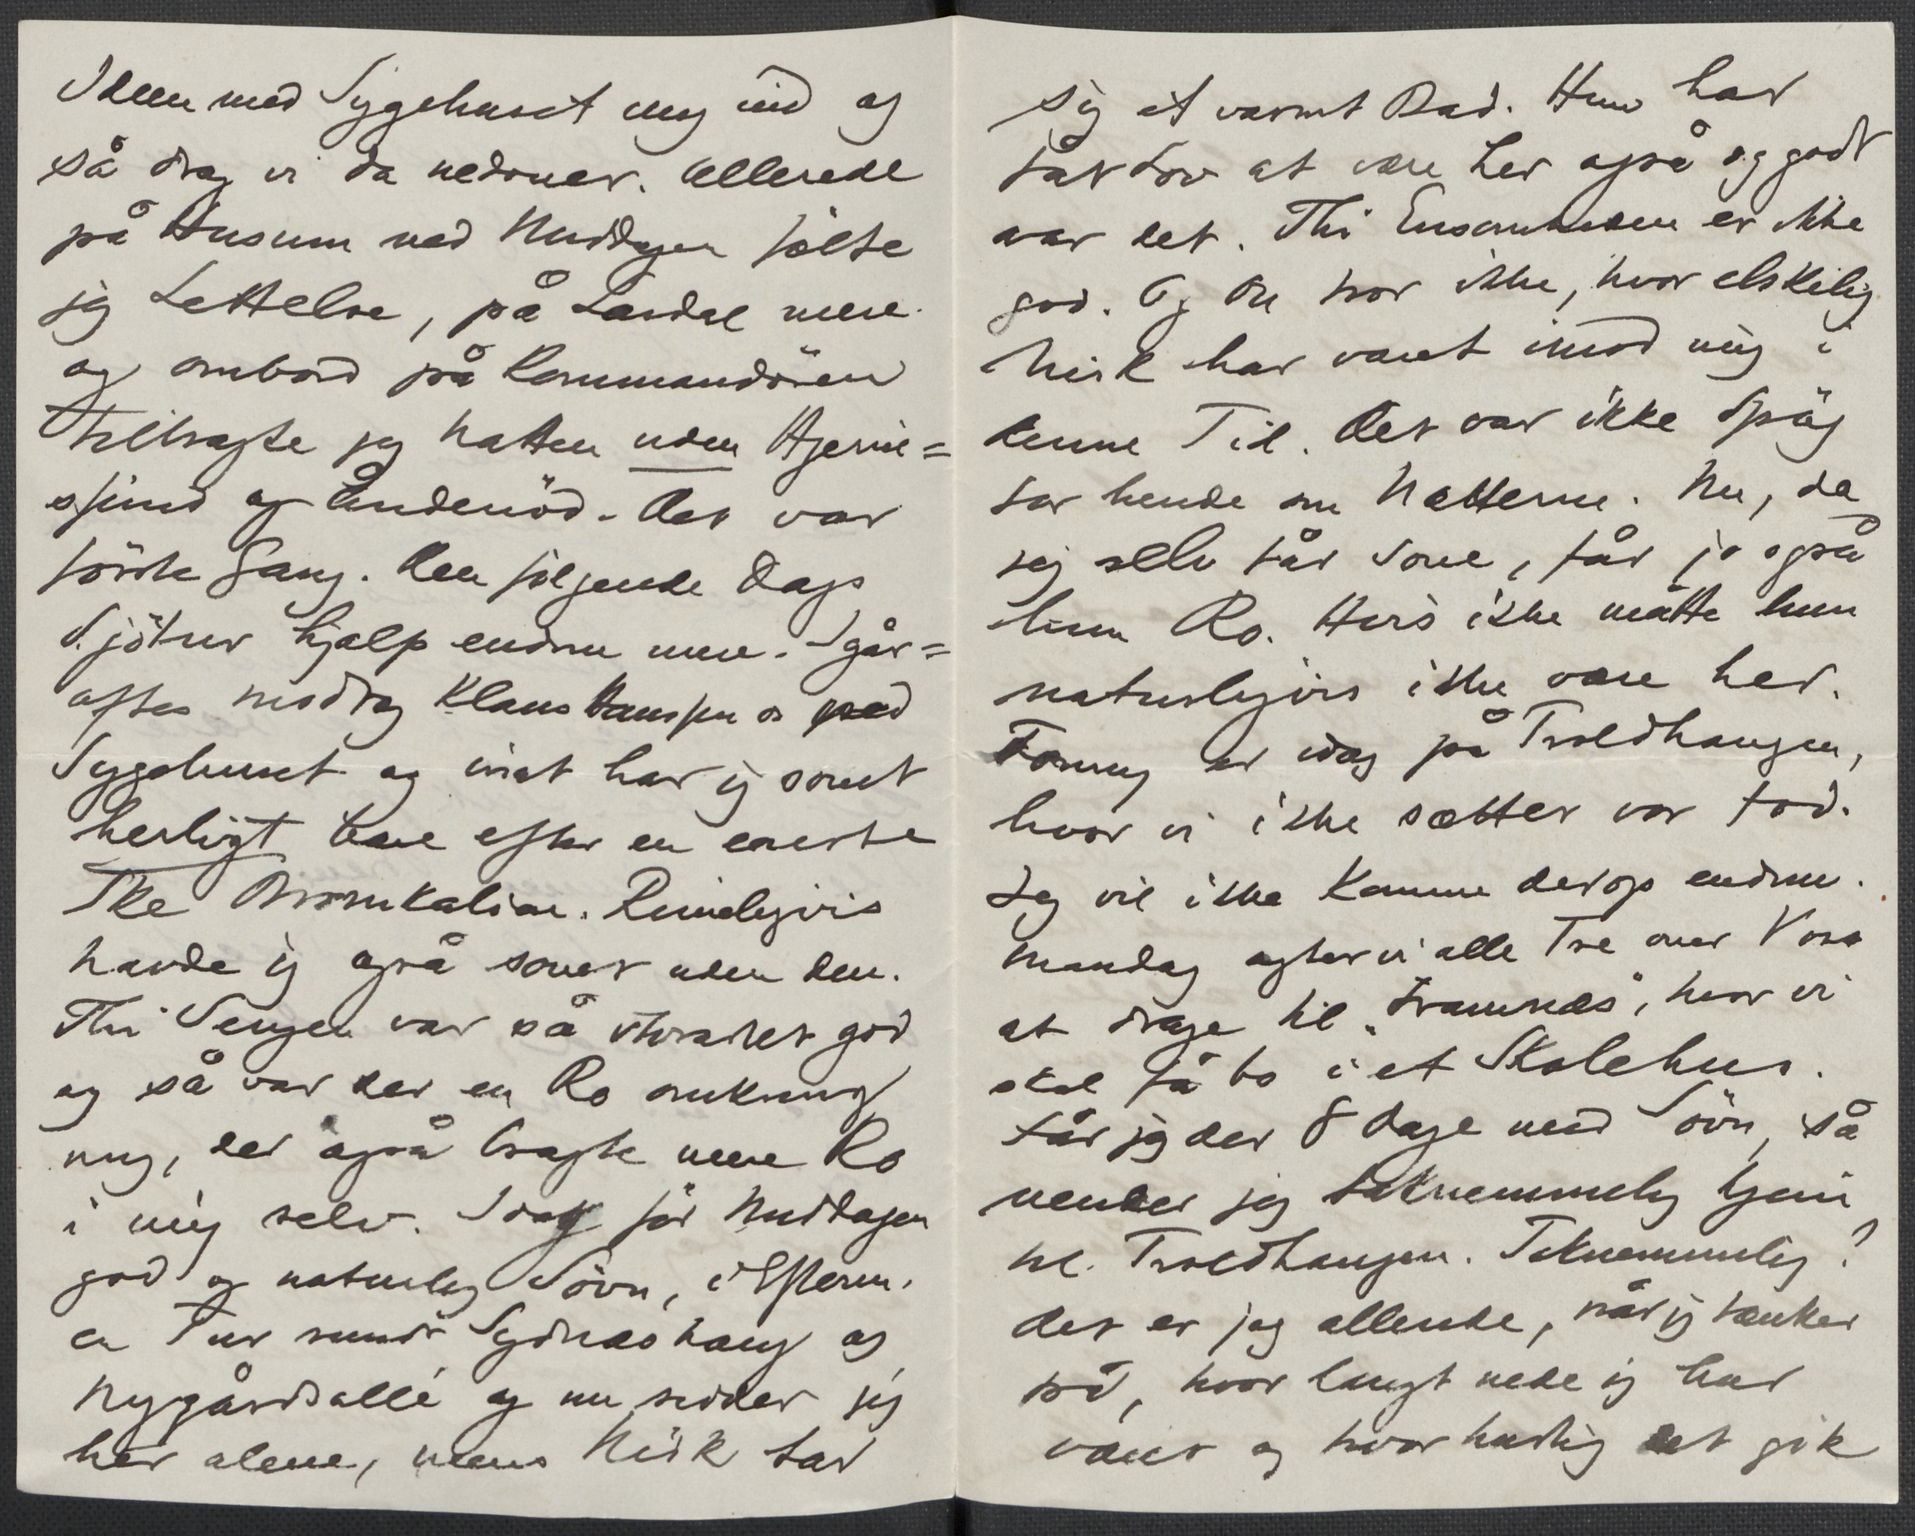 Ideen med Sygehuset mig ind og
så drog vi da nedover. Allerede
på Husum ved Middagen følte
jeg Lettelse, på Lærdal mere
og ombord på Kommandören
tilbragte jeg Natten uden Hjerte=
 og Åndenöd. Det var
förste Gang. Den følgende Dags
Sjötur hjalp endnu mere. Igår=
aftes modtog Klaus Hanssen os på
Sygehuset og inat har jeg sovet
herligt bare efter en eneste
Ske Bromkalium. Rimeligvis
havde jeg også sovet uden den.
Thi Sengen var så udmærket god
og så var der en Ro omkring
mig, der også bragte mere Ro
i mig selv. Idag før Middagen
god og naturlig Sövn, i Efterm.
en Tur rundt Sydneshaug og
Nygårdsallé og nu sidder jeg
her alene, mens Nisk tar
sig et varmt Bad. Hun har
fåt Lov at være her også og godt
var det. Thi Ensomheden er ikke
god. Og Du tror ikke, hvor elskelig
Nisk har været imod mig i
denne Tid. Det var ikke Spög
for hende om Nætterne. Nu, da
jeg selv får sove, får jo også
hun Ro. Hvis ikke måtte hun
naturligvis ikke være her.
Tonny er idag på Troldhaugen,
hvor vi ikke sætter vor Fod.
Jeg vil ikke komme derop endnu.
Mandag agter vi alle Tre over Voss
at drage til „Framnæs", hvor vi
skal få bo i et Skolehus.
Får jeg der 8 Dage med Sövn, så
vender jeg taknemmelig hjem
til Troldhaugen. Taknemmelig!
det er jeg allerede, når jeg tænker
på, hvor langt nede jeg har
været og hvor hurtig det gik